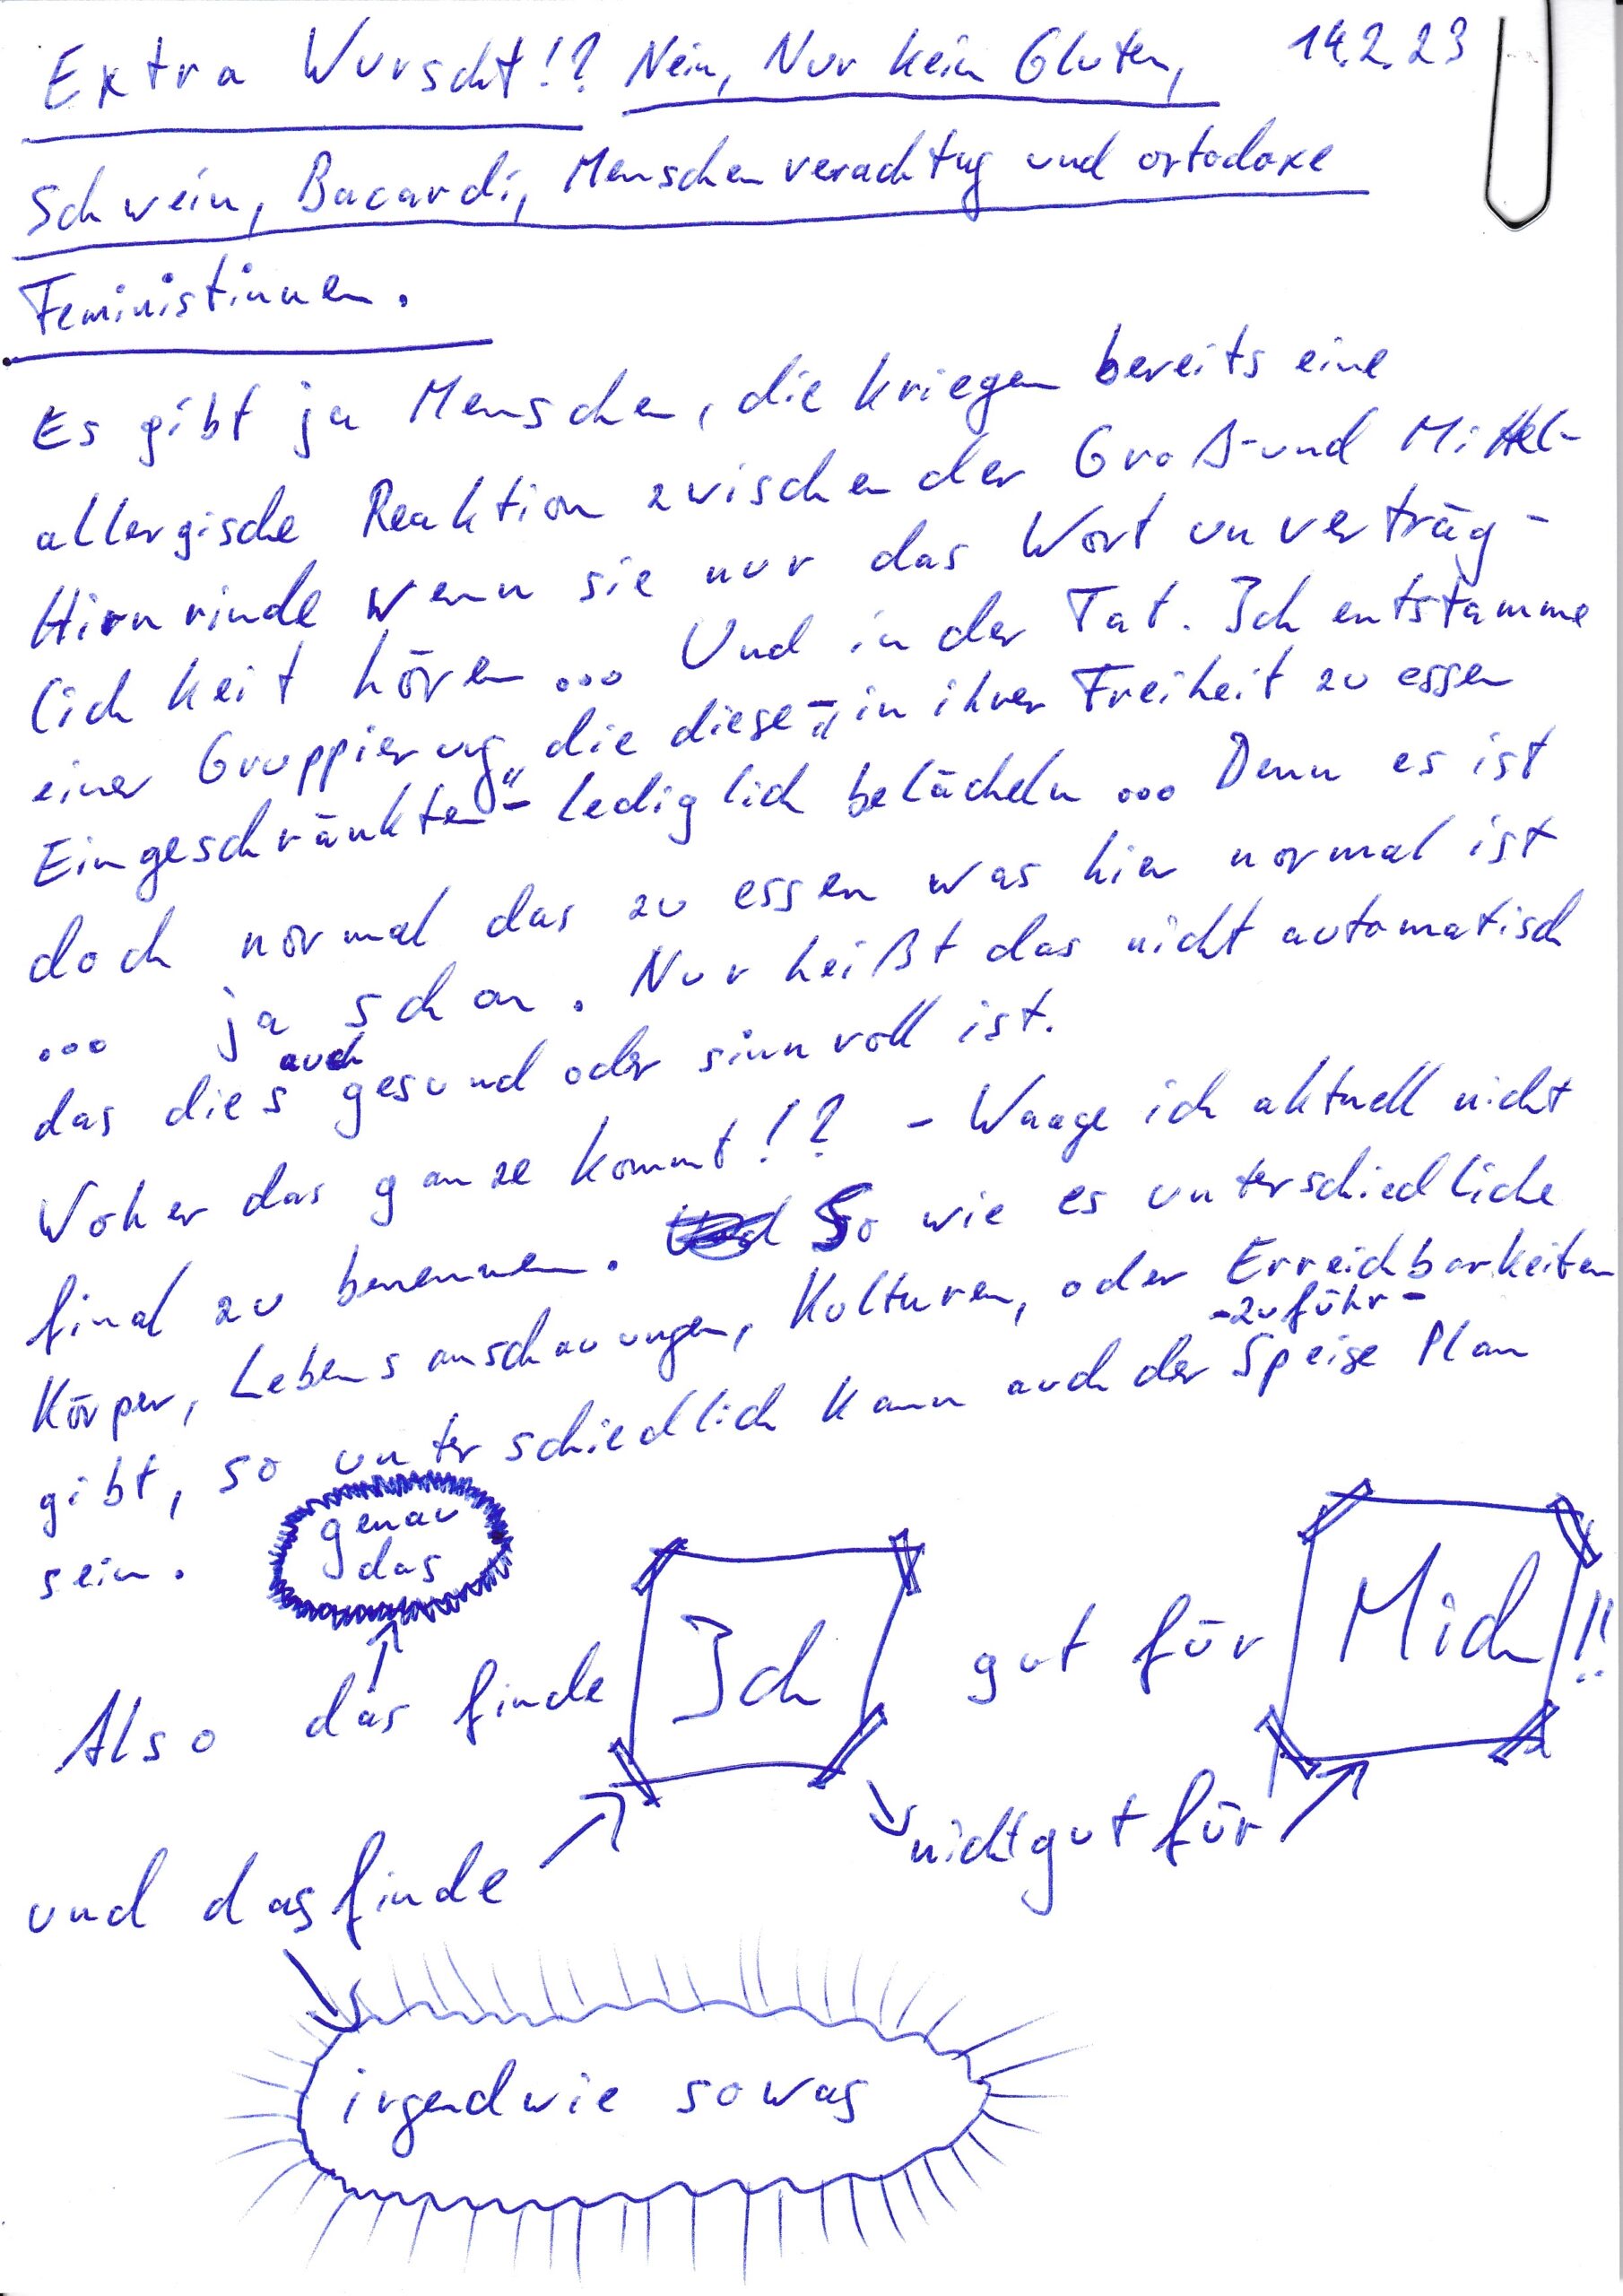 Extra Wurscht!? Nein, Nur kein Gluten, 14.2.23
Schwein, Bacardi, Menschenverachtug und ortodoxe
Feministinnen.
Es gibt ja Menschen, die kriegen bereits eine
allergische Reaktion zwischen der Groß- und Mittel-
Hirnrinde wenn sie nur das Wort unverträg-
lichkeit hören ... Und in der Tat. Ich entstamme
einer Gruppierung, die diese - „in ihrer Freiheit zu essen
Eingeschränkten“ - lediglich belächeln ... Denn es ist
doch normal das zu essen was hier normal ist
... ja schon. Nur heißt das nicht automatisch
das dies auch gesund oder sinnvoll ist.
Woher das ganze kommt!? - Waage ich aktuell nicht
final zu benennen. So wie es unterschiedliche
Körper, Lebensanschauungen, Kulturen, oder Erreichbarkeiten
-zuführ-
gibt, so unterschiedlich kann auch der Speise Plan
sein.
genau
das
Also das finde Ich gut für Mich!!
und das finde nicht gut für
irgendwie sowas